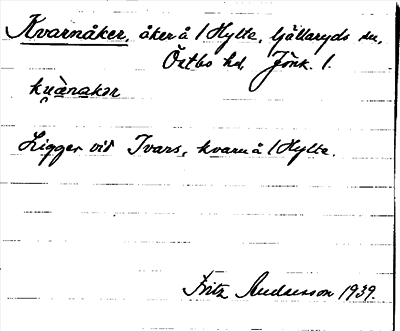 Kvarnåker, åker å 1 Hylte, Gällaryds sn,
Östbo hd, Jönk. l.
ku̯àrnakər
Ligger vid Ivars, kvarn å 1 Hylte.
Fritz Andersson 1939.